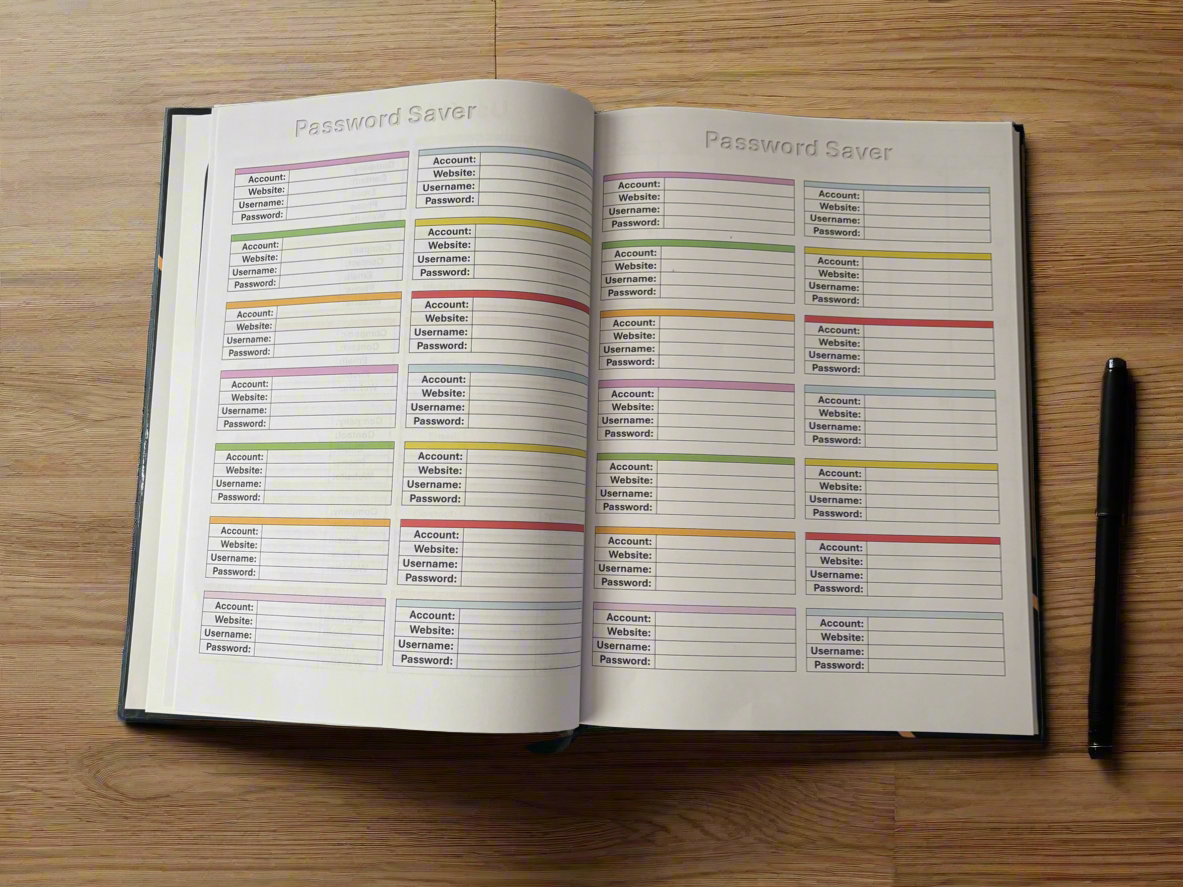 Password Saver
Account:
Website:
Username:
Password:
Account:
Website:
Username:
Password:
Account:
Website:
Username:
Password:
Account:
Website:
Username:
Password:
Account:
Website:
Username:
Password:
Account:
Website:
Username:
Password:
Account:
Website:
Username:
Password:
Account:
Website:
Username:
Password:
Account:
Website:
Username:
Password:
Account:
Website:
Username:
Password:
Account:
Website:
Username:
Password:
Account:
Website:
Username:
Password:
Account:
Website:
Username:
Password:
Account:
Website:
Username:
Password:
Password Saver
Account:
Website:
Username:
Password:
Account:
Website:
Username:
Password:
Account:
Website:
Username:
Password:
Account:
Website:
Username:
Password:
Account:
Website:
Username:
Password:
Account:
Website:
Username:
Password:
Account:
Website:
Username:
Password:
Account:
Website:
Username:
Password:
Account:
Website:
Username:
Password:
Account:
Website:
Username:
Password:
Account:
Website:
Username:
Password:
Account:
Website:
Username:
Password:
Account:
Website:
Username:
Password:
Account:
Website:
Username:
Password: